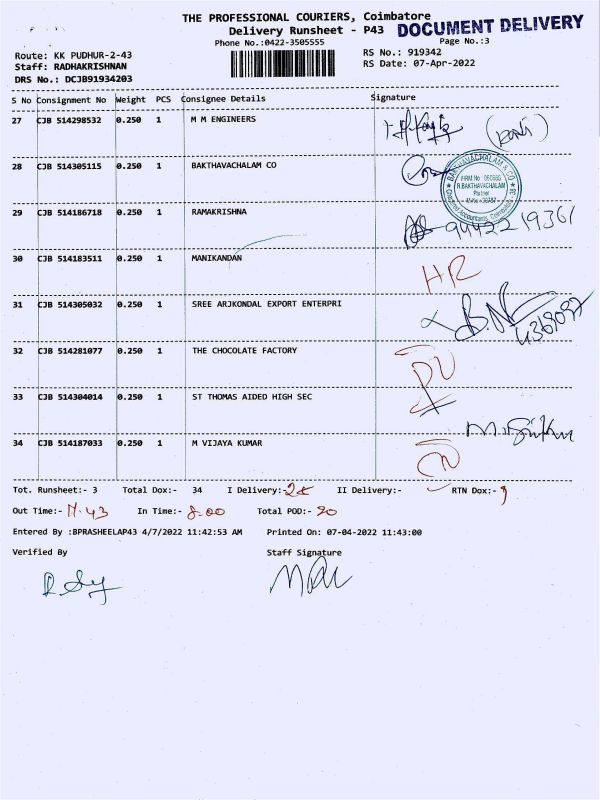 THE PROFESSIONAL COURIERS, Coimbatore
DOCUMENT DELIVERY
Delivery Runsheet - P43
Phone No.:0422-3505555
Page No.:3
Route: KK PUDHUR-2-43
RS No.: 919342
Staff: RADHAKRISHNAN
RS Date: 07-Apr-2022
DRS No.: DCJB91934203
S No Consignment No Weight PCS Consignee Details Signature
27 CJB 514298532 0.250 1 M M ENGINEERS
28 CJB 514305115 0.250 1 BAKTHAVACHALAM CO
BAKTHAVACHALAM & CO
R.BAKTHAVACHALAM
Partner
Chartered Accountants, Coimbatore
29 CJB 514186718 0.250 1 RAMAKRISHNA
30 CJB 514183511 0.250 1 MANIKANDAN HR
31 CJB 514305032 0.250 1 SREE ARJKONDAL EXPORT ENTERPRI
32 CJB 514281077 0.250 1 THE CHOCOLATE FACTORY
33 CJB 514304014 0.250 1 ST THOMAS AIDED HIGH SEC
34 CJB 514187033 0.250 1 M VIJAYA KUMAR
Tot. Runsheet:- 3 Total Dox:- 34 I Delivery:- II Delivery:- RTN Dox:-
Out Time:- 11.43 In Time:- 8.00 Total POD:-
Entered By :BPRASHEELAP43 4/7/2022 11:42:53 AM Printed On: 07-04-2022 11:43:00
Verified By Staff Signature